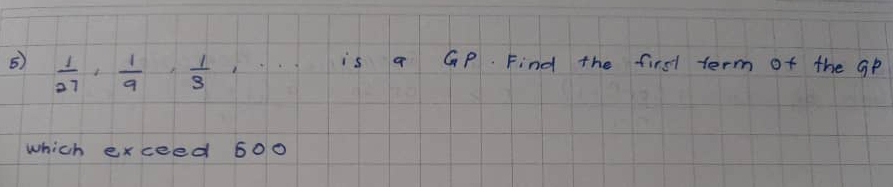 5) 1/27, 1/9, 1/3, ... is a GP. Find the first term of the GP
which exceed 500